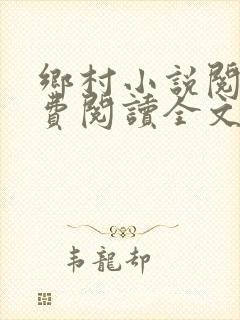 鄉村小說閱
費閱讀全文
韦龍却